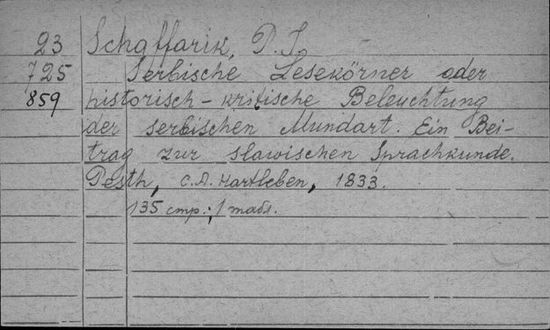 23 Schaffarik, P. J.
725 Serbische Lesekörner oder
859 historisch-kritische Beleuchtung
der serbischen Mundart. Ein Bei-
trag zur slawischen Sprachkunde.
Pesth, C.A. Hartleben, 1833.
135 стр.; 1 табл.